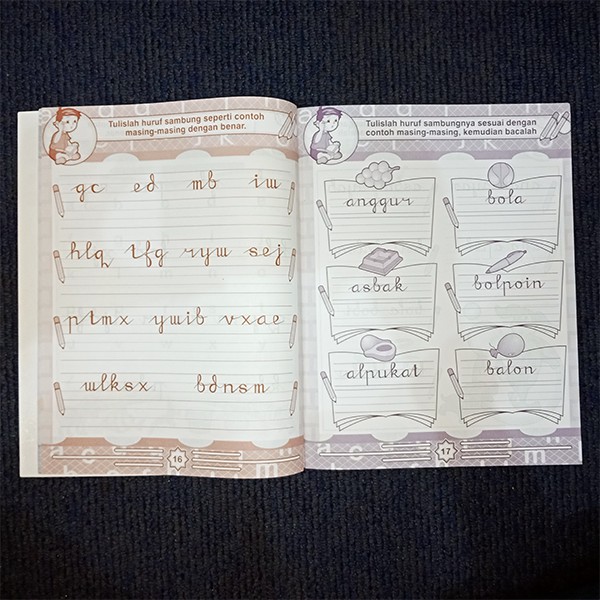 Tulislah huruf sambung seperti contoh
masing-masing dengan benar.
gc ed mb iw
hlq ifg ryw sej
ptmx ywib vxae
wlksx bdnsm
16
Tulislah huruf sambungnya sesuai dengan
contoh masing-masing, kemudian bacalah
anggur bola
asbak bolpoin
alpukat balon
17